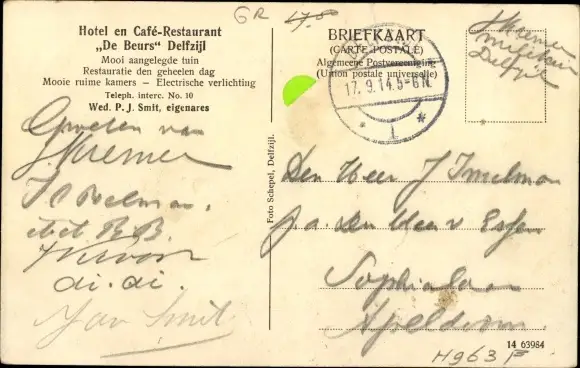 GR
Hotel en Café-Restaurant
„De Beurs" Delfzijl
Mooi aangelegde tuin
Restauratie den geheelen dag
Mooie ruime kamers — Electrische verlichting
Teleph. interc. No. 10
Wed. P. J. Smit, eigenares
Groeten van
J. Kremer
di. di.
Jan Smit
Foto Schepel, Delfzijl.
BRIEFKAART
(CARTE POSTALE)
Algemeene Postvereeniging
(Union postale universelle)
17.9.14.5-6N
1
J Kremer
militair
Delfzijl
Den Heer J Imelman
p.a. den Heer v Essen
Sophialaan
Apeldoorn
14 63984
H963 F